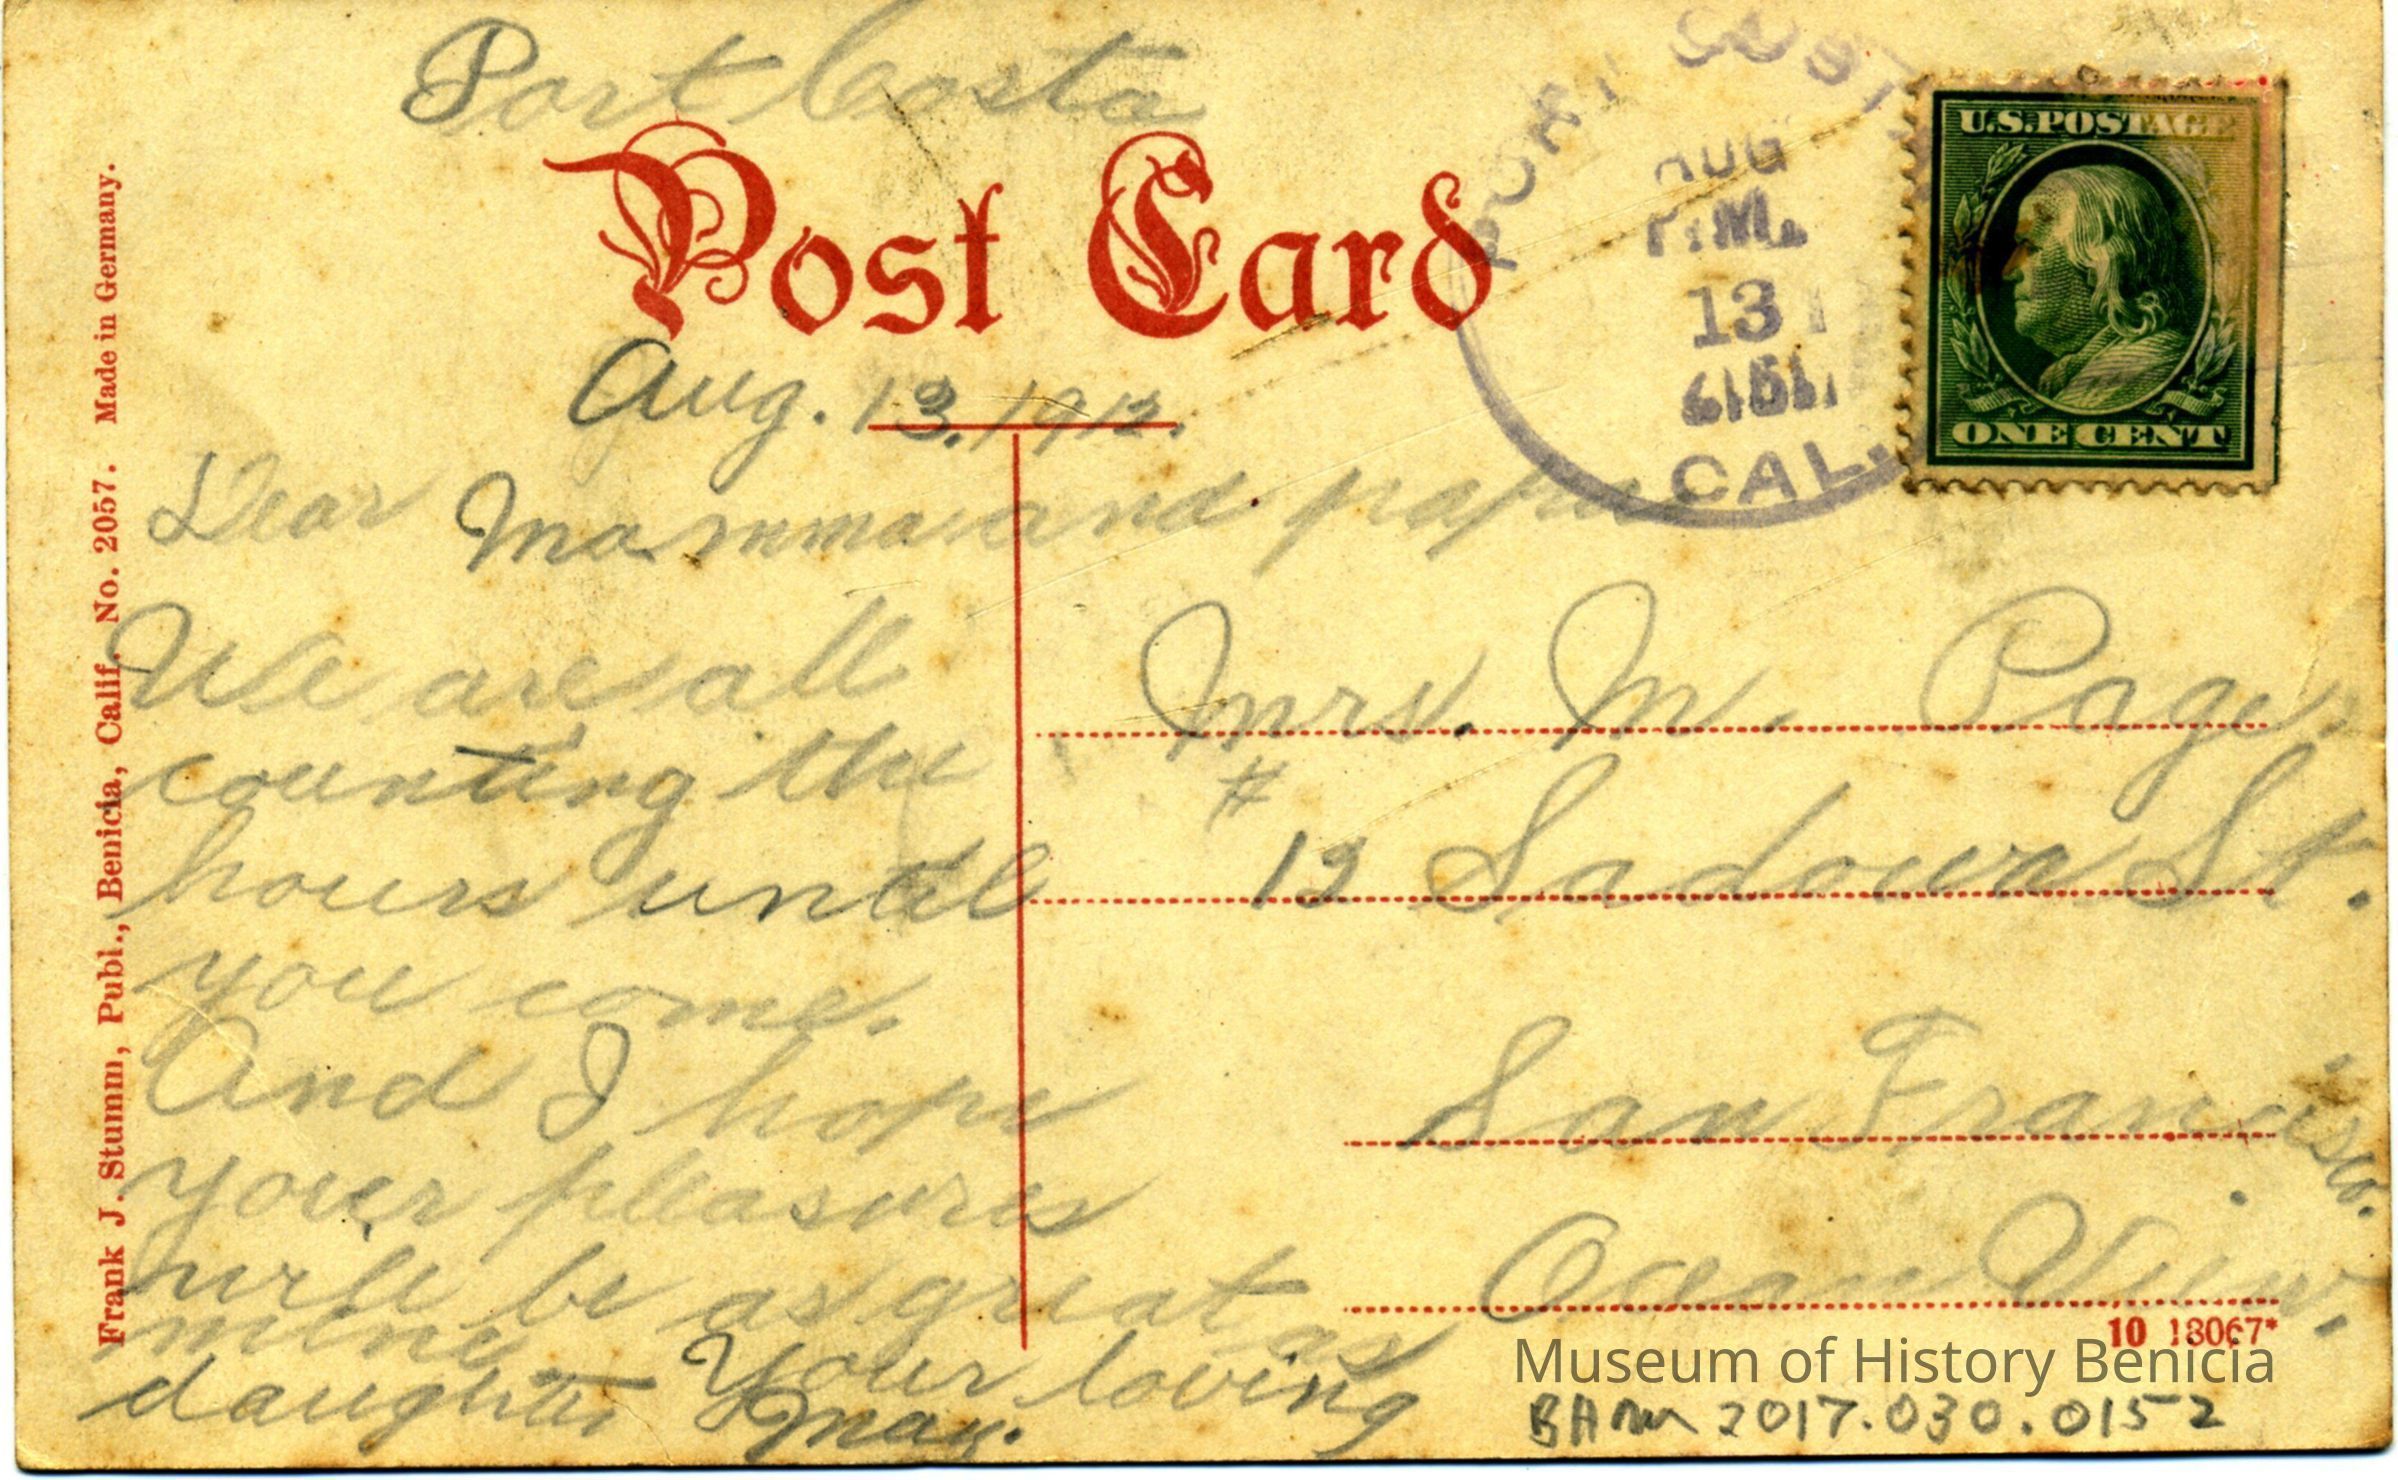 Port Costa
Post Card
PORT COSTA
AUG
P.M.
13
CAL.
U.S.POSTAGE
ONE CENT
Aug. 13, 1912.
Dear Mamma and papa
We are all
counting the
hours until
you come.
And I hope
your pleasures
will be as great as
mine
Your loving
daughter May.
Mrs. M. Page,
#
12 Sadowa St.
San Francisco.
Ocean View.
Frank J. Stumm, Publ., Benicia, Calif. No. 2057. Made in Germany.
10 18067*
Museum of History Benicia
BAM 2017.030.0152